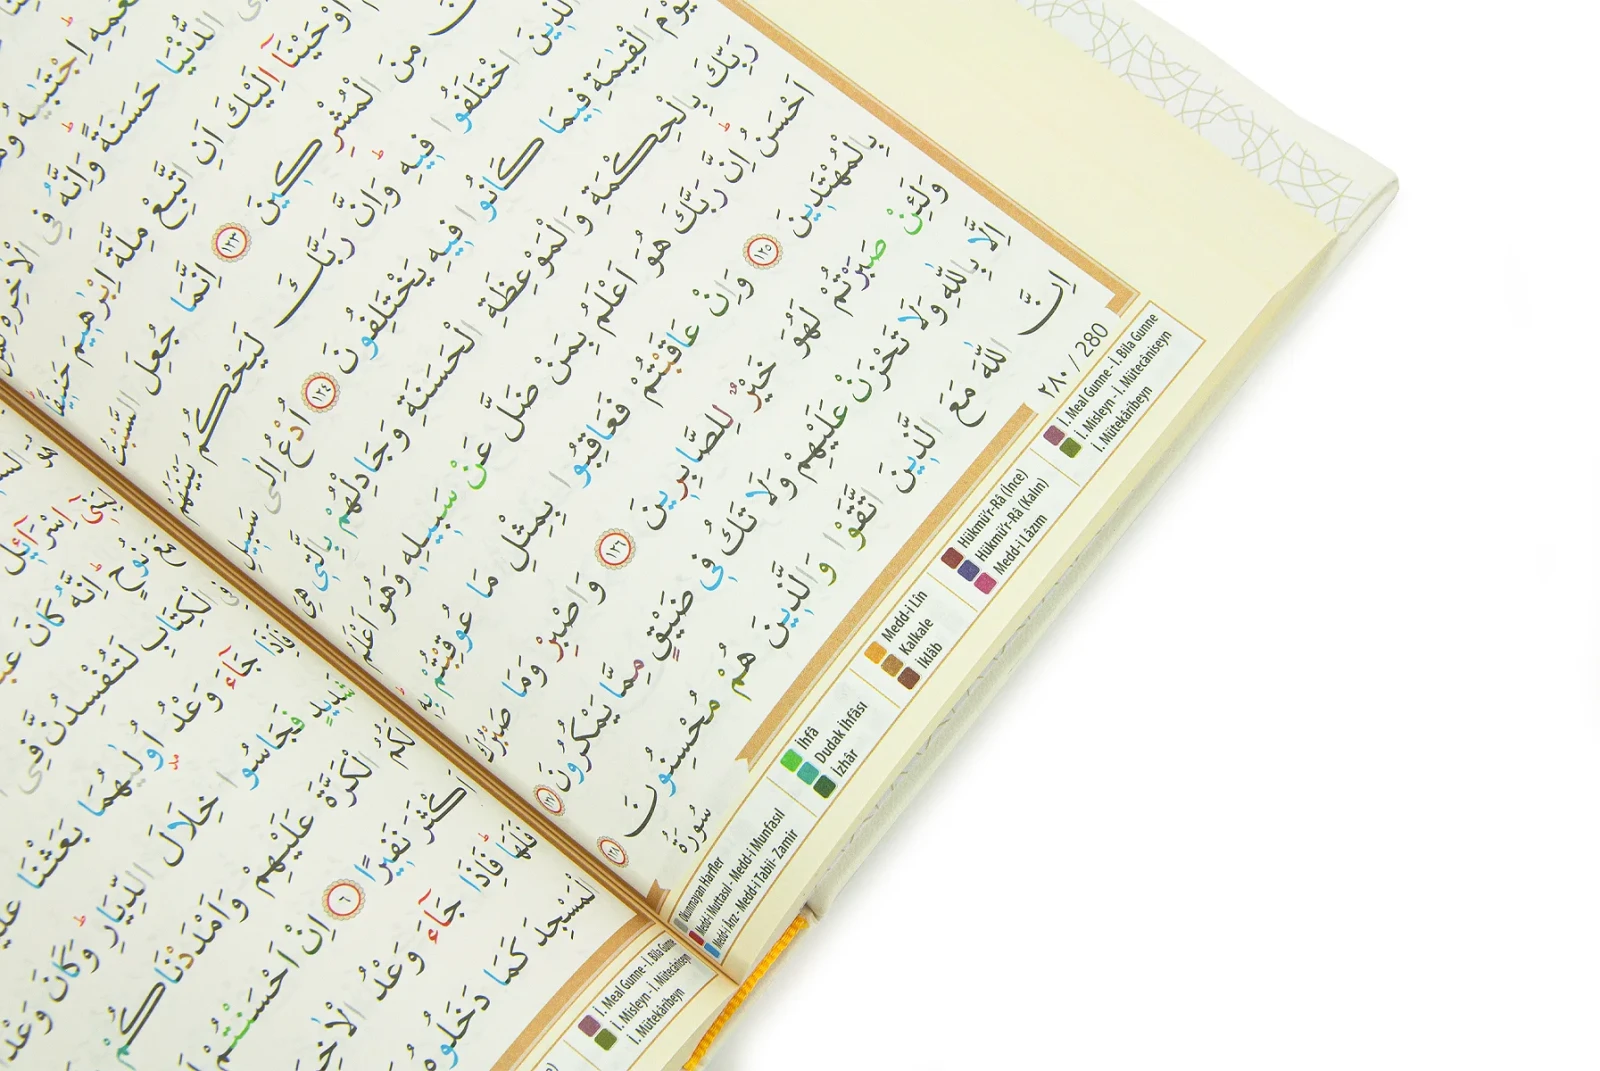 اِجْتَبٰيهُ
الدُّنْيَا حَسَنَةً وَاِنَّهُ فِى الْاٰخِرَةِ
اَوْحَيْنَآ اِلَيْكَ اَنِ اتَّبِعْ مِلَّةَ اِبْرٰهِيمَ حَنِيفًا
مِنَ الْمُشْرِكِينَ ١٢٣ اِنَّمَا جُعِلَ السَّبْتُ
الَّذِينَ اخْتَلَفُوا فِيهِ وَاِنَّ رَبَّكَ لَيَحْكُمُ بَيْنَهُمْ
يَوْمَ الْقِيٰمَةِ فِيمَا كَانُوا فِيهِ يَخْتَلِفُونَ ١٢٤ اُدْعُ اِلٰى سَبِيلِ
رَبِّكَ بِالْحِكْمَةِ وَالْمَوْعِظَةِ الْحَسَنَةِ وَجَادِلْهُمْ بِالَّتِى هِىَ
اَحْسَنُ اِنَّ رَبَّكَ هُوَ اَعْلَمُ بِمَنْ ضَلَّ عَنْ سَبِيلِهِ وَهُوَ اَعْلَمُ
بِالْمُهْتَدِينَ ١٢٥ وَاِنْ عَاقَبْتُمْ فَعَاقِبُوا بِمِثْلِ مَا عُوقِبْتُمْ بِهِ
وَلَئِنْ صَبَرْتُمْ لَهُوَ خَيْرٌ لِلصَّابِرِينَ ١٢٦ وَاصْبِرْ وَمَا صَبْرُكَ
اِلَّا بِاللّٰهِ وَلَا تَحْزَنْ عَلَيْهِمْ وَلَا تَكُ فِى ضَيْقٍ مِمَّا يَمْكُرُونَ ١٢٧
اِنَّ اللّٰهَ مَعَ الَّذِينَ اتَّقَوْا وَالَّذِينَ هُمْ مُحْسِنُونَ ١٢٨
سُورَةُ
٢٨٠ / 280
Okunmayan Harfler
Medd-i Muttasıl - Medd-i Munfasıl
Medd-i Arız - Medd-i Tabii - Zamir
İhfâ
Dudak İhfâsı
İzhâr
Medd-i Lîn
Kalkale
İklâb
Hükmü'r-Râ (İnce)
Hükmü'r-Râ (Kalın)
Medd-i Lâzım
İ. Meal Gunne - İ. Bila Gunne
İ. Misleyn - İ. Mütecâniseyn
İ. Mütekâribeyn
بَنِىٓ اِسْرَآئِلَ
مَعَ نُوحٍ اِنَّهُ كَانَ
فِى الْكِتَابِ لَتُفْسِدُنَّ فِى
فَاِذَا جَآءَ وَعْدُ اُولٰيهُمَا بَعَثْنَا
شَدِيدٍ فَجَاسُوا خِلَالَ الدِّيَارِ وَكَانَ وَعْدًا
لَكُمُ الْكَرَّةَ عَلَيْهِمْ وَاَمْدَدْنَاكُمْ
اَكْثَرَ نَفِيرًا ٦ اِنْ اَحْسَنْتُمْ
فَلَهَا فَاِذَا جَآءَ وَعْدُ
الْمَسْجِدَ كَمَا دَخَلُوهُ
İ. Meal Gunne - İ. Bila Gunne
İ. Misleyn - İ. Mütecâniseyn
İ. Mütekâribeyn